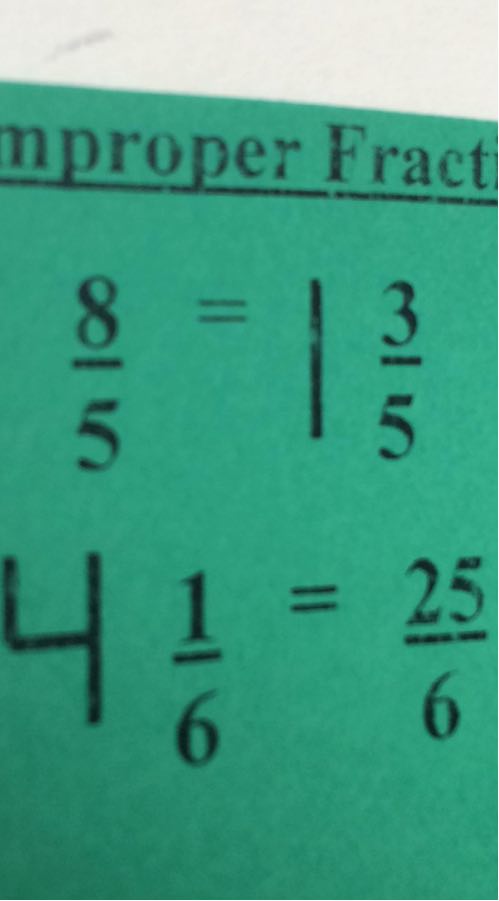 mproper Fracti
8/5 = 1 3/5
4 1/6 = 25/6